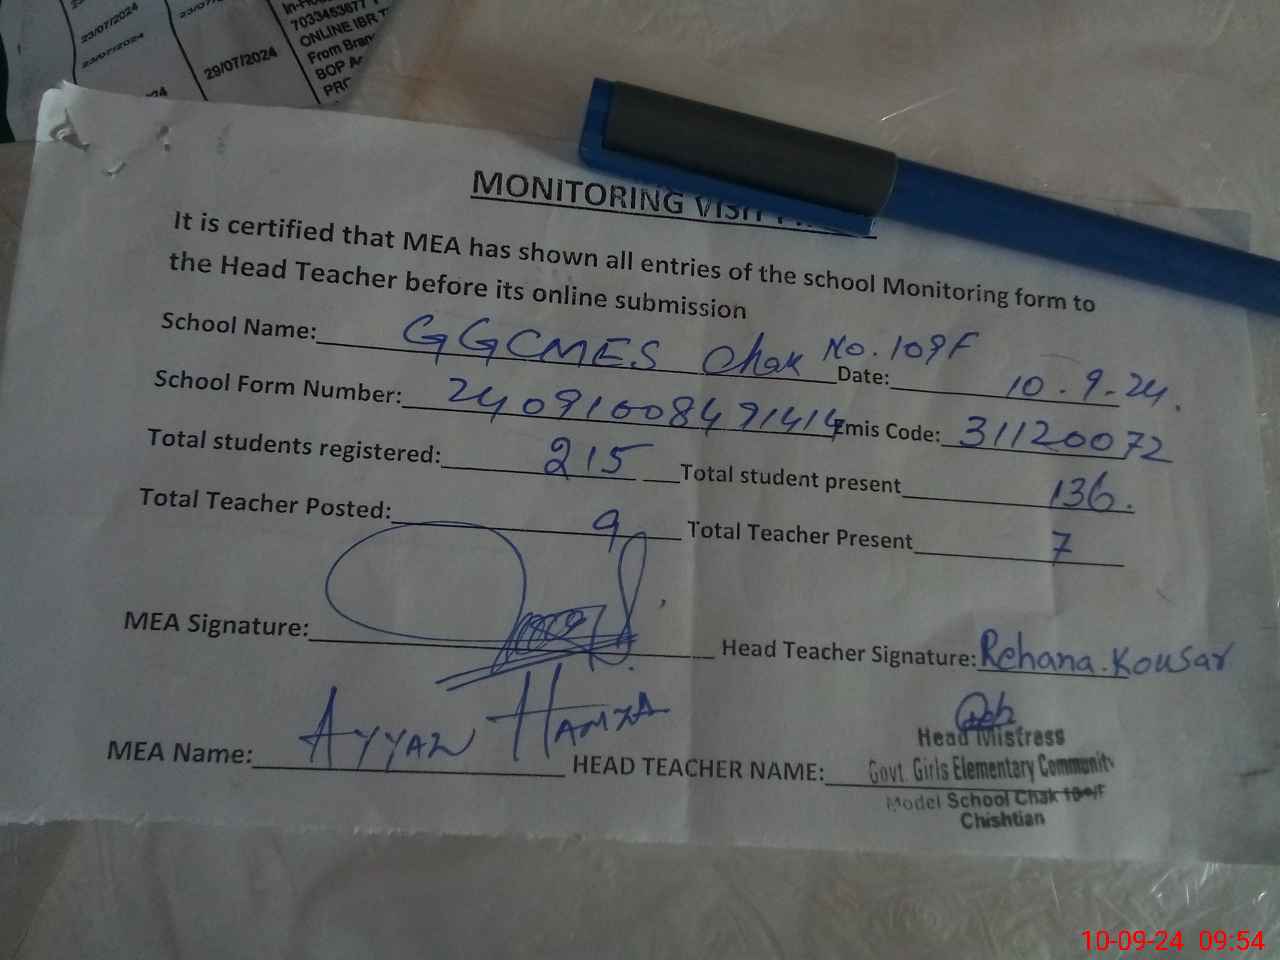 23/07/2024
23/07/2024
29/07/2024
7033453677
ONLINE IBR
From Bran
BOP
MONITORING VISIT
It is certified that MEA has shown all entries of the school Monitoring form to
the Head Teacher before its online submission
School Name: GGCMES Chak No. 109F Date: 10.9.24.
School Form Number: 24091008491414 Emis Code: 31120072
Total students registered: 215 Total student present 136.
Total Teacher Posted: 9 Total Teacher Present 7
MEA Signature: Head Teacher Signature: Rehana.Kousar
MEA Name: AYYAN HAMZA HEAD TEACHER NAME:
Head Mistress
Govt. Girls Elementary Community
Model School Chak 109/F
Chishtian
10-09-24 09:54